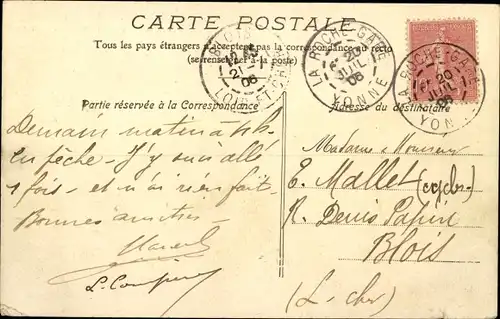 CARTE POSTALE
Tous les pays étrangers n'acceptent pas la correspondance au recto
(se renseigner à la poste)
Partie réservée à la Correspondance
Adresse du destinataire
LA ROCHE-GARE
20
JUIL
06
YONNE
LA ROCHE-GARE
20
JUIL
YONNE
BLOIS
21
06
Demain matin à
en pêche - J'y suis allé
1 fois - et n'ai rien fait.
Bonnes amitiés
Marcel
Madame & Monsieur
E. Mallet
R. Denis Papin
Blois
(L. cher)